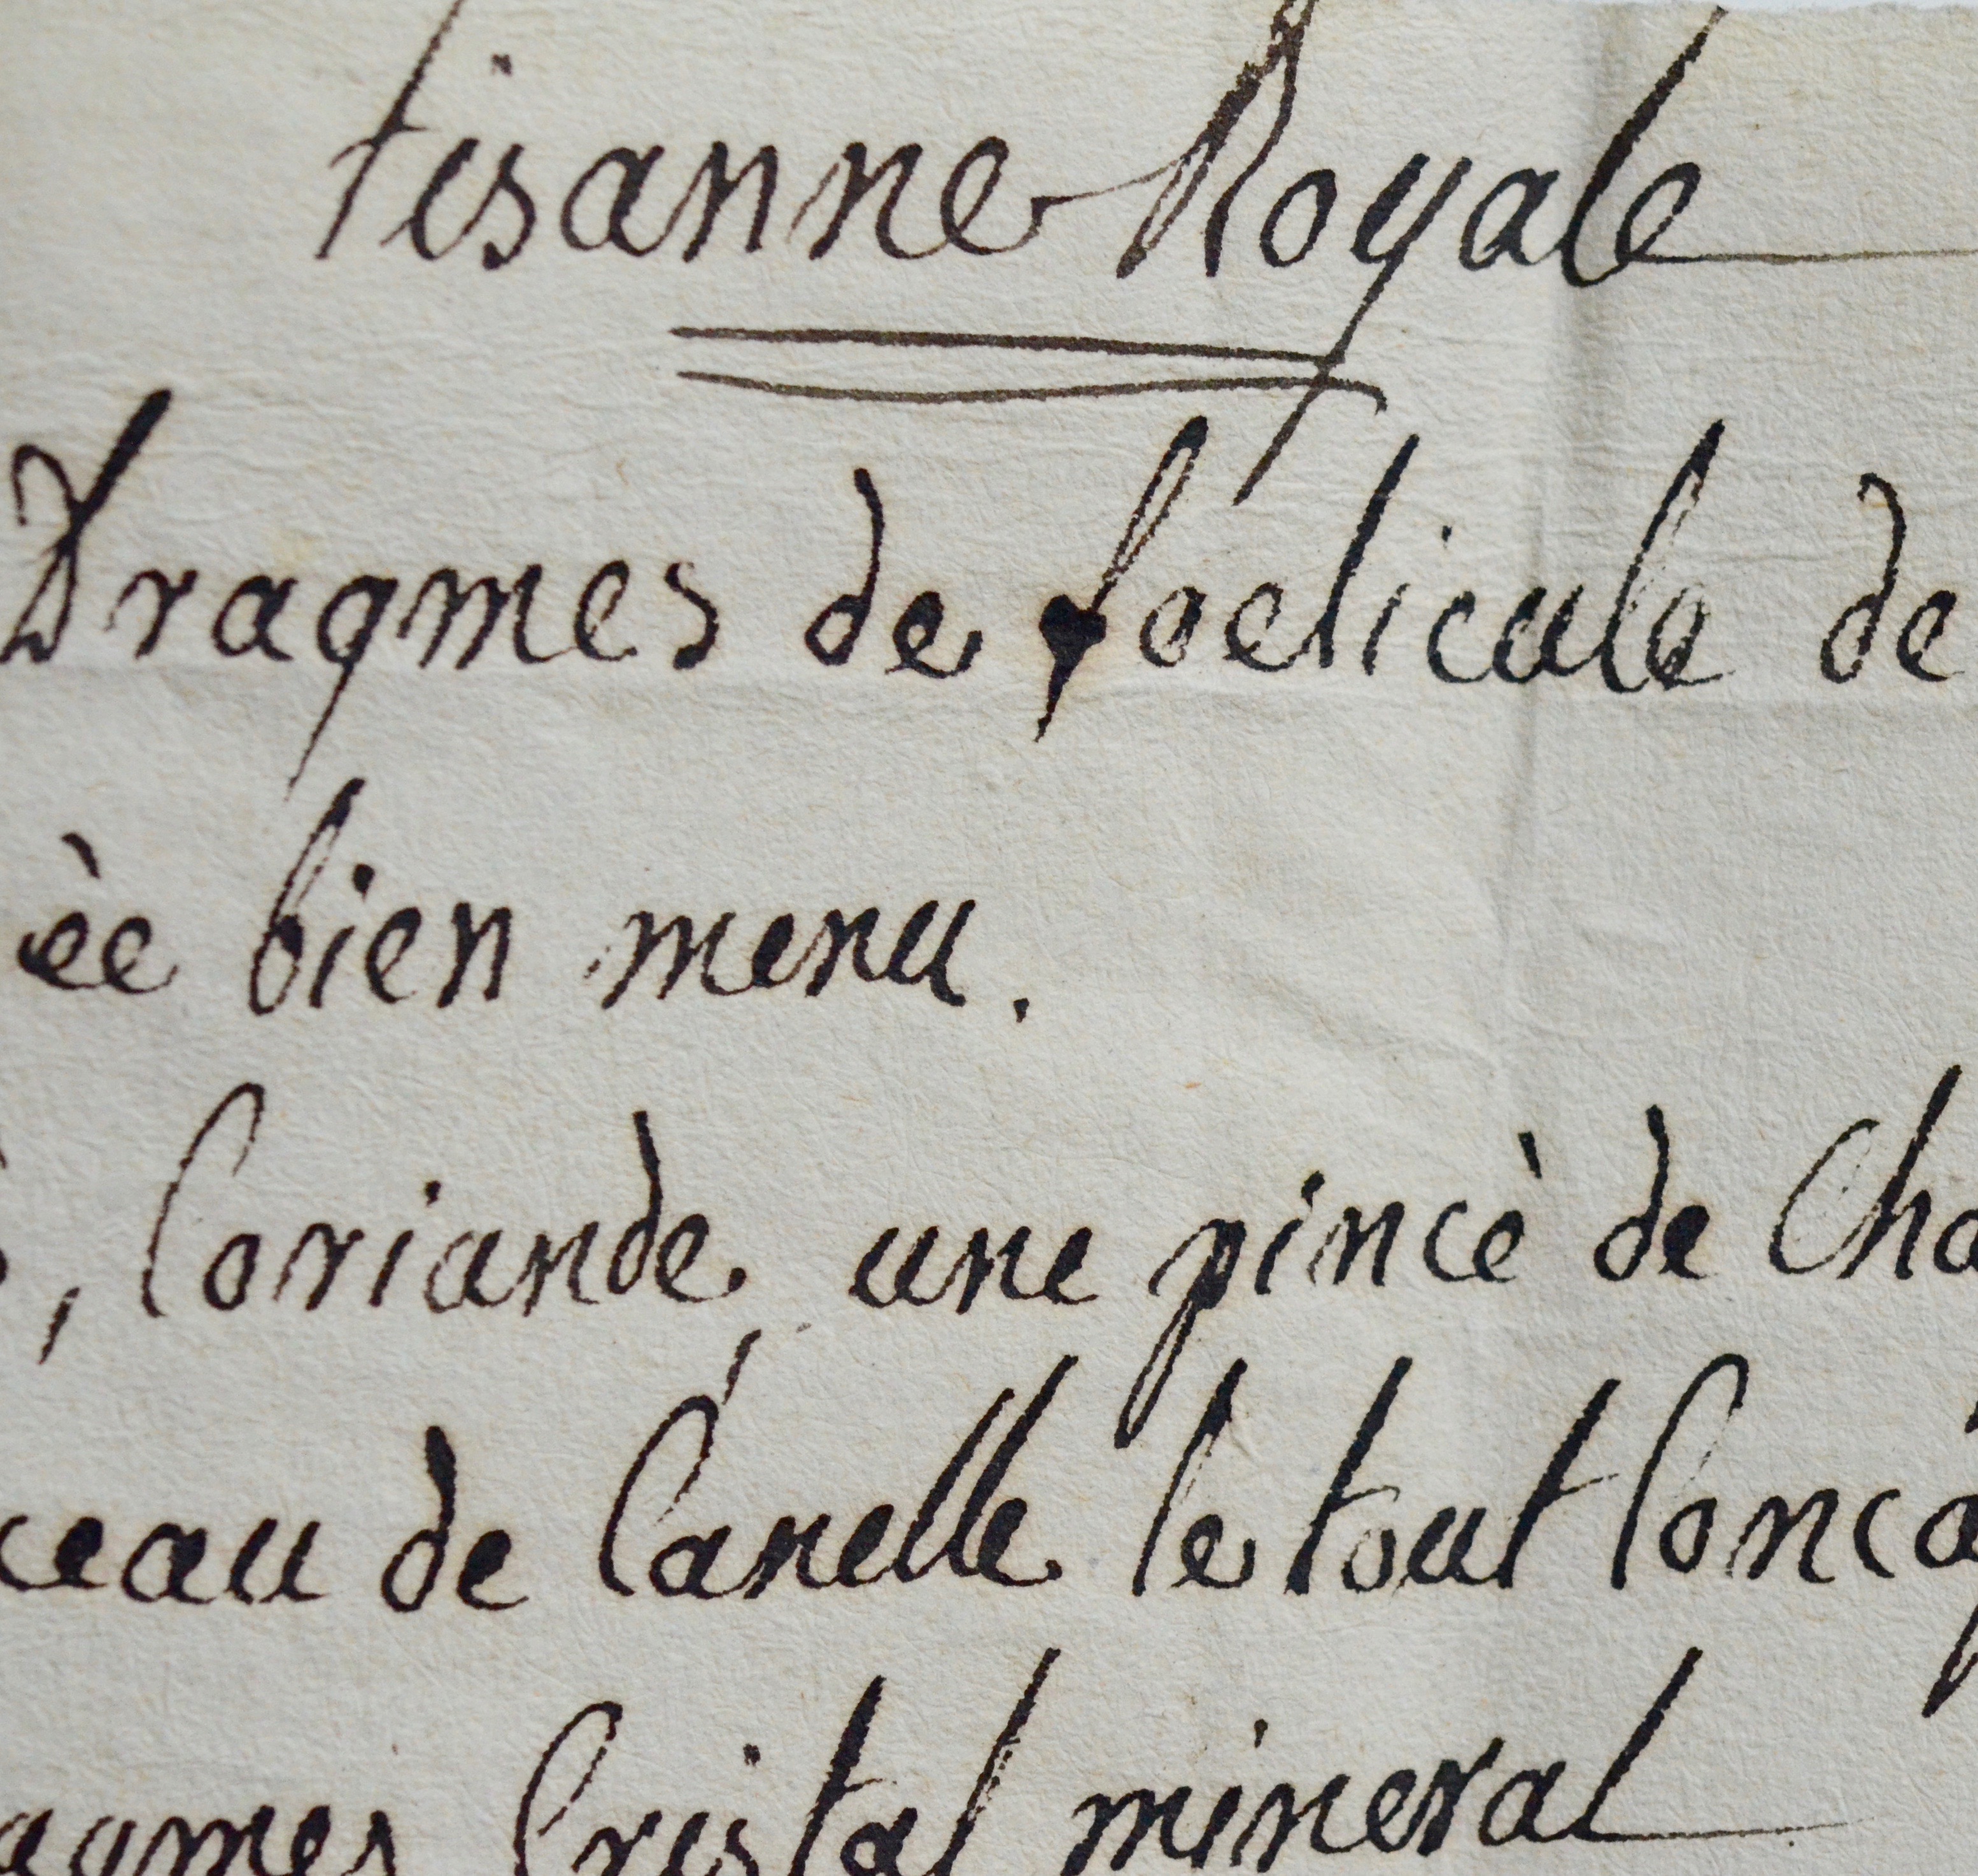 tisanne Royale
Dragmes de foelicule de
èe bien menu.
, Coriande, une pincè de Cha
ceau de Canelle le tout Conca
agmes Cristal mineral